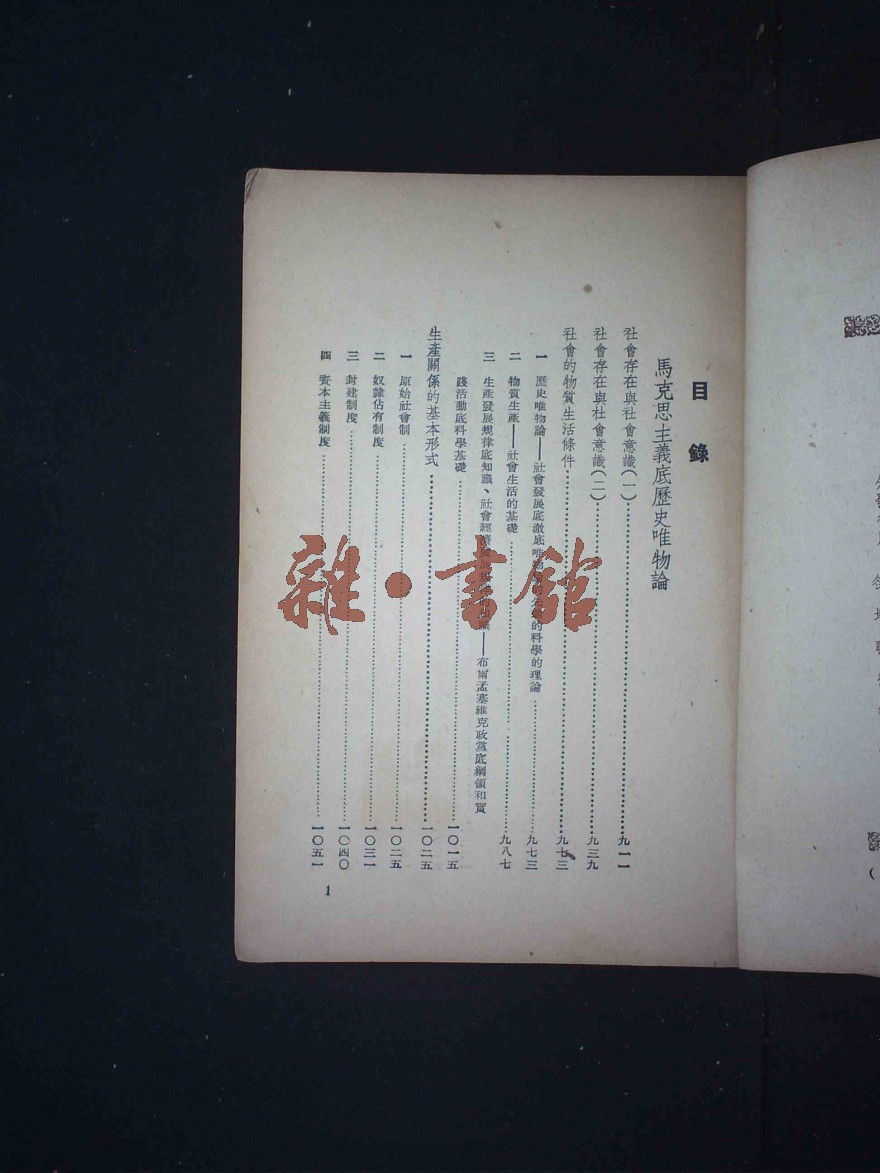 目錄
馬克思主義底歷史唯物論
社會存在與社會意識(一)……九一一
社會存在與社會意識(二)……九三九
社會的物質生活條件……九七三
一 歷史唯物論——社會發展底澈底唯物的科學的理論……九七三
二 物質生產——社會生活的基礎……九八七
三 生產發展規律底知識、社會經濟發展——布爾孟塞維克政黨底綱領和實
踐活動底科學基礎……一〇一五
生產關係的基本形式……一〇二五
一 原始社會制……一〇二五
二 奴隸佔有制度……一〇三一
三 封建制度……一〇四〇
四 資本主義制度……一〇五一
1
雜·書館